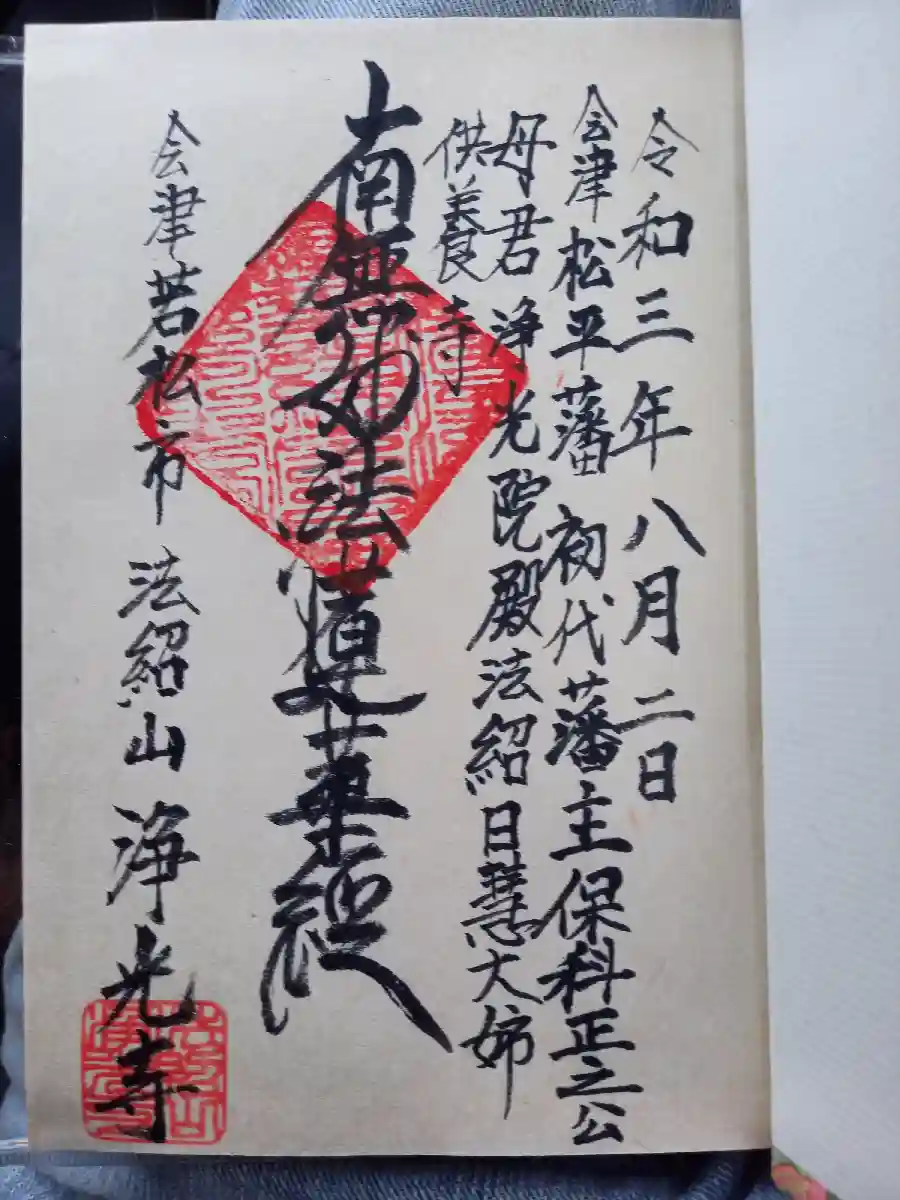 令和三年八月二日
会津松平藩初代藩主保科正之公
母君浄光院殿法紹日慧大姉
供養寺
南無妙法蓮華経
会津若松市 法紹山 浄光寺